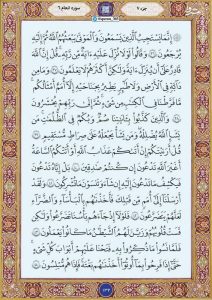 سوره انعام ٦
جزء ٧
۞ إِنَّمَا يَسْتَجِيبُ ٱلَّذِينَ يَسْمَعُونَ وَٱلْمَوْتَىٰ يَبْعَثُهُمُ ٱللَّهُ ثُمَّ إِلَيْهِ
يُرْجَعُونَ ٣٦ وَقَالُوا۟ لَوْلَا نُزِّلَ عَلَيْهِ ءَايَةٌ مِّن رَّبِّهِۦ قُلْ إِنَّ ٱللَّهَ
قَادِرٌ عَلَىٰٓ أَن يُنَزِّلَ ءَايَةً وَلَٰكِنَّ أَكْثَرَهُمْ لَا يَعْلَمُونَ ٣٧ وَمَا مِن
دَآبَّةٍ فِى ٱلْأَرْضِ وَلَا طَٰٓئِرٍ يَطِيرُ بِجَنَاحَيْهِ إِلَّآ أُمَمٌ أَمْثَالُكُم
مَّا فَرَّطْنَا فِى ٱلْكِتَٰبِ مِن شَىْءٍ ثُمَّ إِلَىٰ رَبِّهِمْ يُحْشَرُونَ
٣٨ وَٱلَّذِينَ كَذَّبُوا۟ بِـَٔايَٰتِنَا صُمٌّ وَبُكْمٌ فِى ٱلظُّلُمَٰتِ مَن
يَشَإِ ٱللَّهُ يُضْلِلْهُ وَمَن يَشَأْ يَجْعَلْهُ عَلَىٰ صِرَٰطٍ مُّسْتَقِيمٍ ٣٩
قُلْ أَرَءَيْتَكُمْ إِنْ أَتَىٰكُمْ عَذَابُ ٱللَّهِ أَوْ أَتَتْكُمُ ٱلسَّاعَةُ
أَغَيْرَ ٱللَّهِ تَدْعُونَ إِن كُنتُمْ صَٰدِقِينَ ٤٠ بَلْ إِيَّاهُ تَدْعُونَ
فَيَكْشِفُ مَا تَدْعُونَ إِلَيْهِ إِن شَآءَ وَتَنسَوْنَ مَا تُشْرِكُونَ ٤١ وَلَقَدْ
أَرْسَلْنَآ إِلَىٰٓ أُمَمٍ مِّن قَبْلِكَ فَأَخَذْنَٰهُم بِٱلْبَأْسَآءِ وَٱلضَّرَّآءِ لَعَلَّهُمْ
يَتَضَرَّعُونَ ٤٢ فَلَوْلَآ إِذْ جَآءَهُم بَأْسُنَا تَضَرَّعُوا۟ وَلَٰكِن
قَسَتْ قُلُوبُهُمْ وَزَيَّنَ لَهُمُ ٱلشَّيْطَٰنُ مَا كَانُوا۟ يَعْمَلُونَ ٤٣
فَلَمَّا نَسُوا۟ مَا ذُكِّرُوا۟ بِهِۦ فَتَحْنَا عَلَيْهِمْ أَبْوَٰبَ كُلِّ شَىْءٍ
حَتَّىٰٓ إِذَا فَرِحُوا۟ بِمَآ أُوتُوٓا۟ أَخَذْنَٰهُم بَغْتَةً فَإِذَا هُم مُّبْلِسُونَ ٤٤
١٣٢